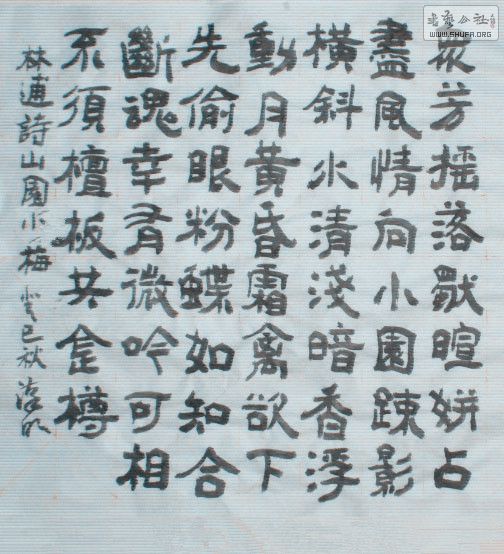 眾芳摇落獨暄妍占
盡風情向小園踈影
橫斜水清淺暗香浮
動月黃昏霜禽欲下
先偷眼粉蝶如知合
斷魂幸有微吟可相
不須檀板共金樽
林逋詩山園小梅 癸巳秋
书艺公社
WWW.SHUFA.ORG